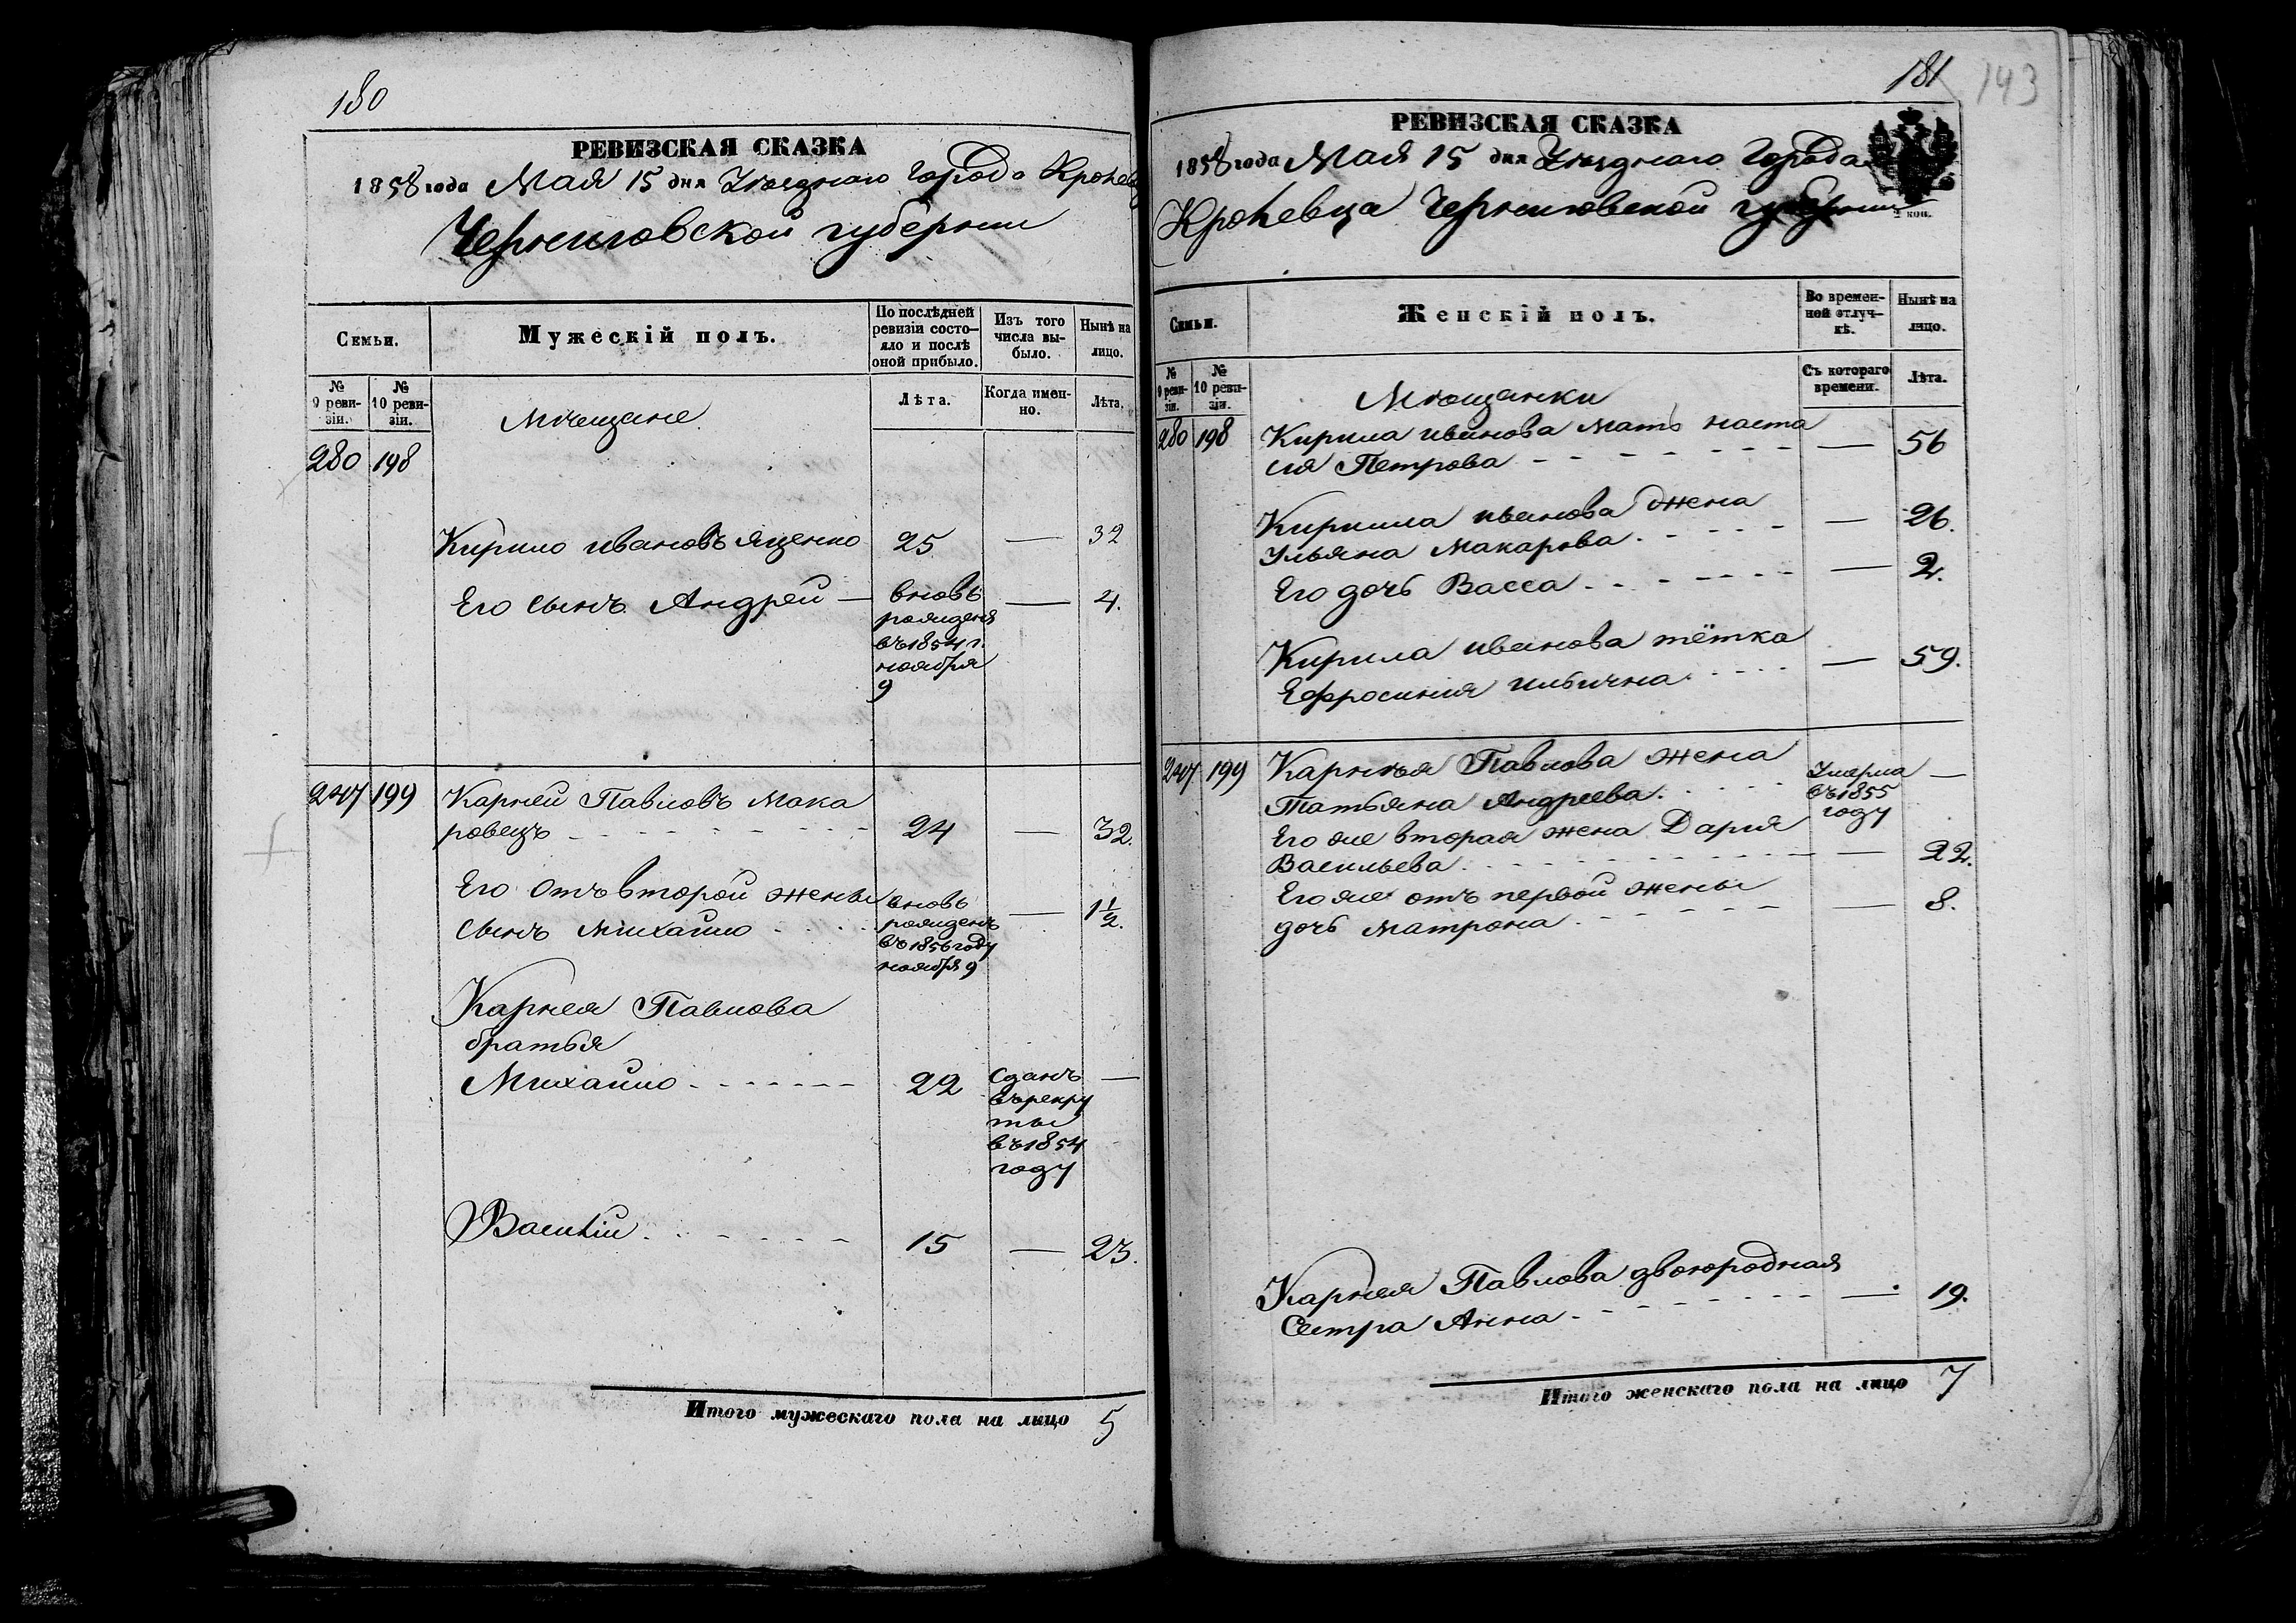 180
РЕВИЗСКАЯ СКАЗКА
1858 года Мая 15 дня Уезднаго города
Черниговской губернии
Семьи.
Мужескій полъ.
По послѣдней ревизіи состо-
яло и послѣ
оной прибыло.
Изъ того
числа вы-
было.
Нынѣ на
лицо.
№
9 реви-
зіи.
№
10 реви-
зіи.
Мещане
Лѣта.
Когда имен-
но.
Лѣта.
280 198
Кирило Ивановъ Яценко 25 — 32
Его сынъ Андрей — вновь — 4.
рожденъ
въ 1854 г.
ноября
9
247 199 Карней Павловъ Мака
ровецъ 24 — 32.
Его отъ второй жены вновь
сынъ Михайло рожденъ — 1 1/2.
въ 1856 году
ноября 9
Карнея Павлова
братья
Михайло 22 сданъ —
въ рекру
ты
въ 1854
году
Василій 15 — 23.
Итого мужескаго пола на лицо 5
181
143
РЕВИЗСКАЯ СКАЗКА
1858 года Мая 15 дня Уезднаго Города
Кролевца Черниговской губернии
коп.
Семьи.
Женскій полъ.
Во времен-
ной отлуч-
кѣ.
Нынѣ на
лицо.
№
9 реви-
зіи.
№
10 реви-
зіи.
Мещанки
Съ котораго
времени.
Лѣта.
280 198 Кирила Иванова мать Наста
сия Петрова — 56
Кирилла Иванова жена
Ульяна Макарова — 26.
Его дочь Васса — 2.
Кирила Иванова тётка
Ефросиния — 59.
247 199 Карнея Павлова жена
Татьяна Андреева умерла —
въ 1855
году
Его же вторая жена Дария
Васильева — 22.
Его же отъ первой жены
дочь Матрона — 8.
Карнея Павлова двоюродная
сестра Анна — 19.
Итого женскаго пола на лицо 7